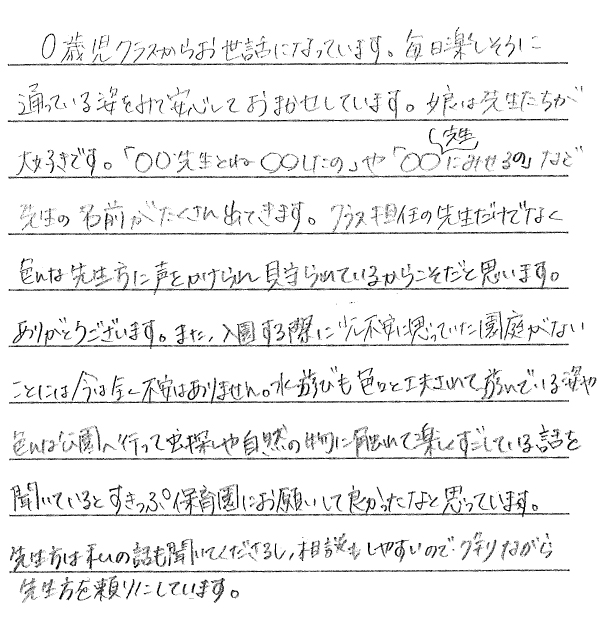 0歳児クラスからお世話になっています。毎日楽しそうに
通っている姿をみて安心しておまかせしています。娘は先生たちが
大好きです。「〇〇先生とね〇〇したの」や「〇〇先生にみせるの」など
先生の名前がたくさん出てきます。クラス担任の先生だけでなく
色んな先生方に声をかけられ見守られているからこそだと思います。
ありがとうございます。また、入園する際に少し不安に思っていた園庭がない
ことには今は全く不安はありません。水遊びも色々と工夫されて遊んでいる姿や
色んな公園へ行って虫探しや自然の物に触れて楽しくすごしている話を
聞いているとすきっぷ保育園にお願いして良かったなと思っています。
先生方は私の話も聞いてくださるし、相談もしやすいので
先生方を頼りにしています。